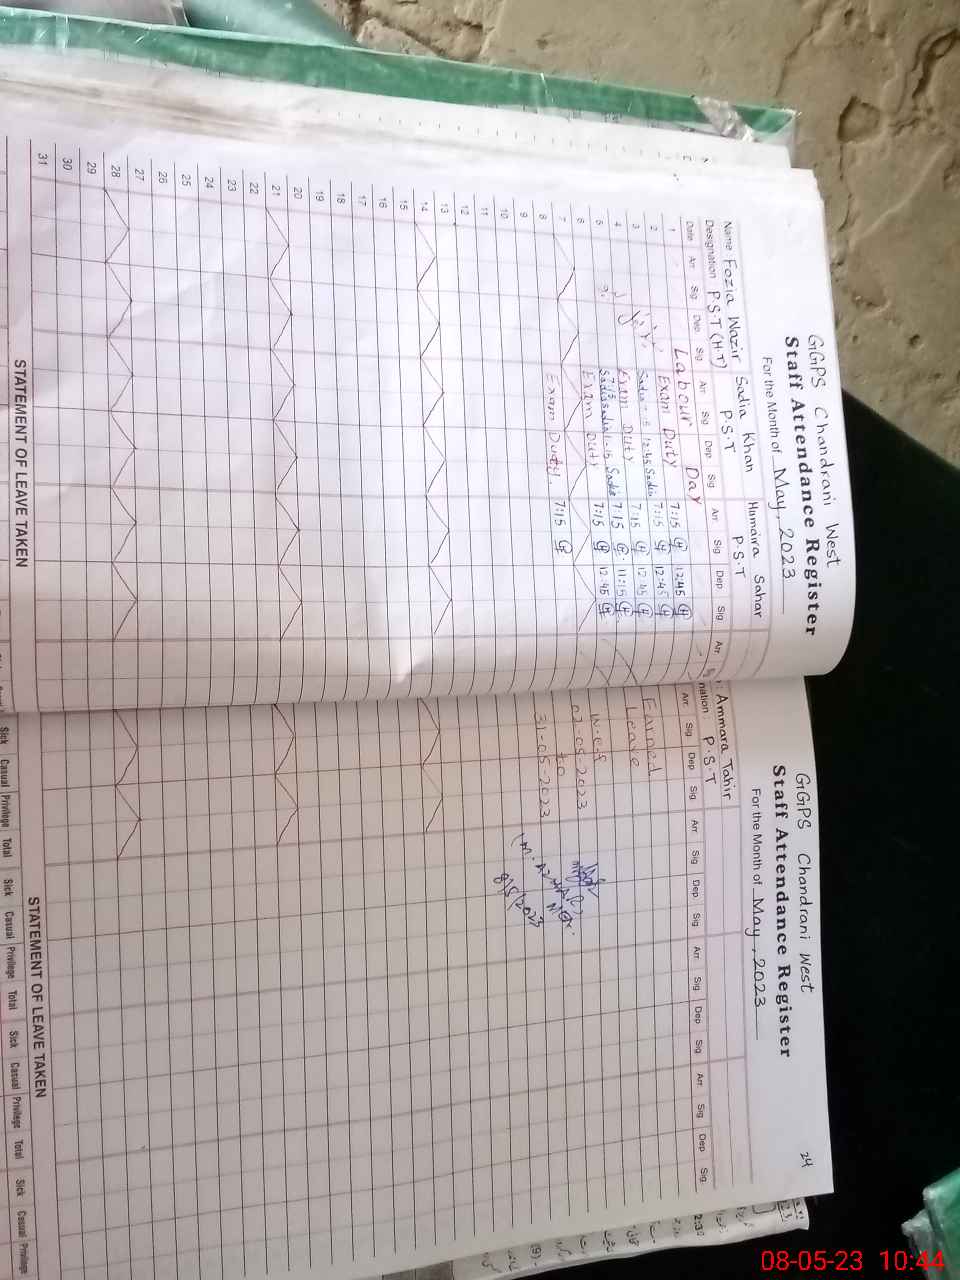 GGPS Chandrani West
Staff Attendance Register
For the Month of May, 2023
Name Fozia Wazir Sadia Khan Humaira Sahar
Designation P.S.T (H.T) P.S.T P.S.T
Date Arr Sig Dep Sig Arr Sig Dep Sig Arr Sig Dep Sig Arr
1 Labour Day 7:15 12:45
2 Exam Duty 7:15 12:45
3 Sadia 12:45 Sadia 7:15 12:45
4 Exam Duty 7:15 11:15
5 7:15 Sadia Sadia 7:15 12:45
6 Exam Duty
7
8 Exam Duty 7:15
9
10
11
12
13
14
15
16
17
18
19
20
21
22
23
24
25
26
27
28
29
30
31
STATEMENT OF LEAVE TAKEN
GGPS Chandrani West
24
Staff Attendance Register
For the Month of May, 2023
Ammara Tahir
nation: P.S.T
Arr. Sig Dep Sig Arr Sig Dep Sig Arr Sig Dep Sig Arr Sig Dep Sig
Earned
Leave
w.e.f
02-05-2023
to
31-05-2023
8/5/2023
STATEMENT OF LEAVE TAKEN
Sick Casual Privilege Total Sick Casual Privilege Total Sick Casual Privilege Total Sick Casual Privilege
08-05-23 10:44